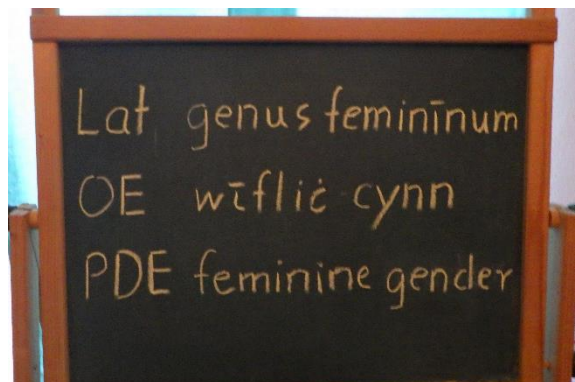 Lat genus feminīnum
OE wīfliċ cynn
PDE feminine gender